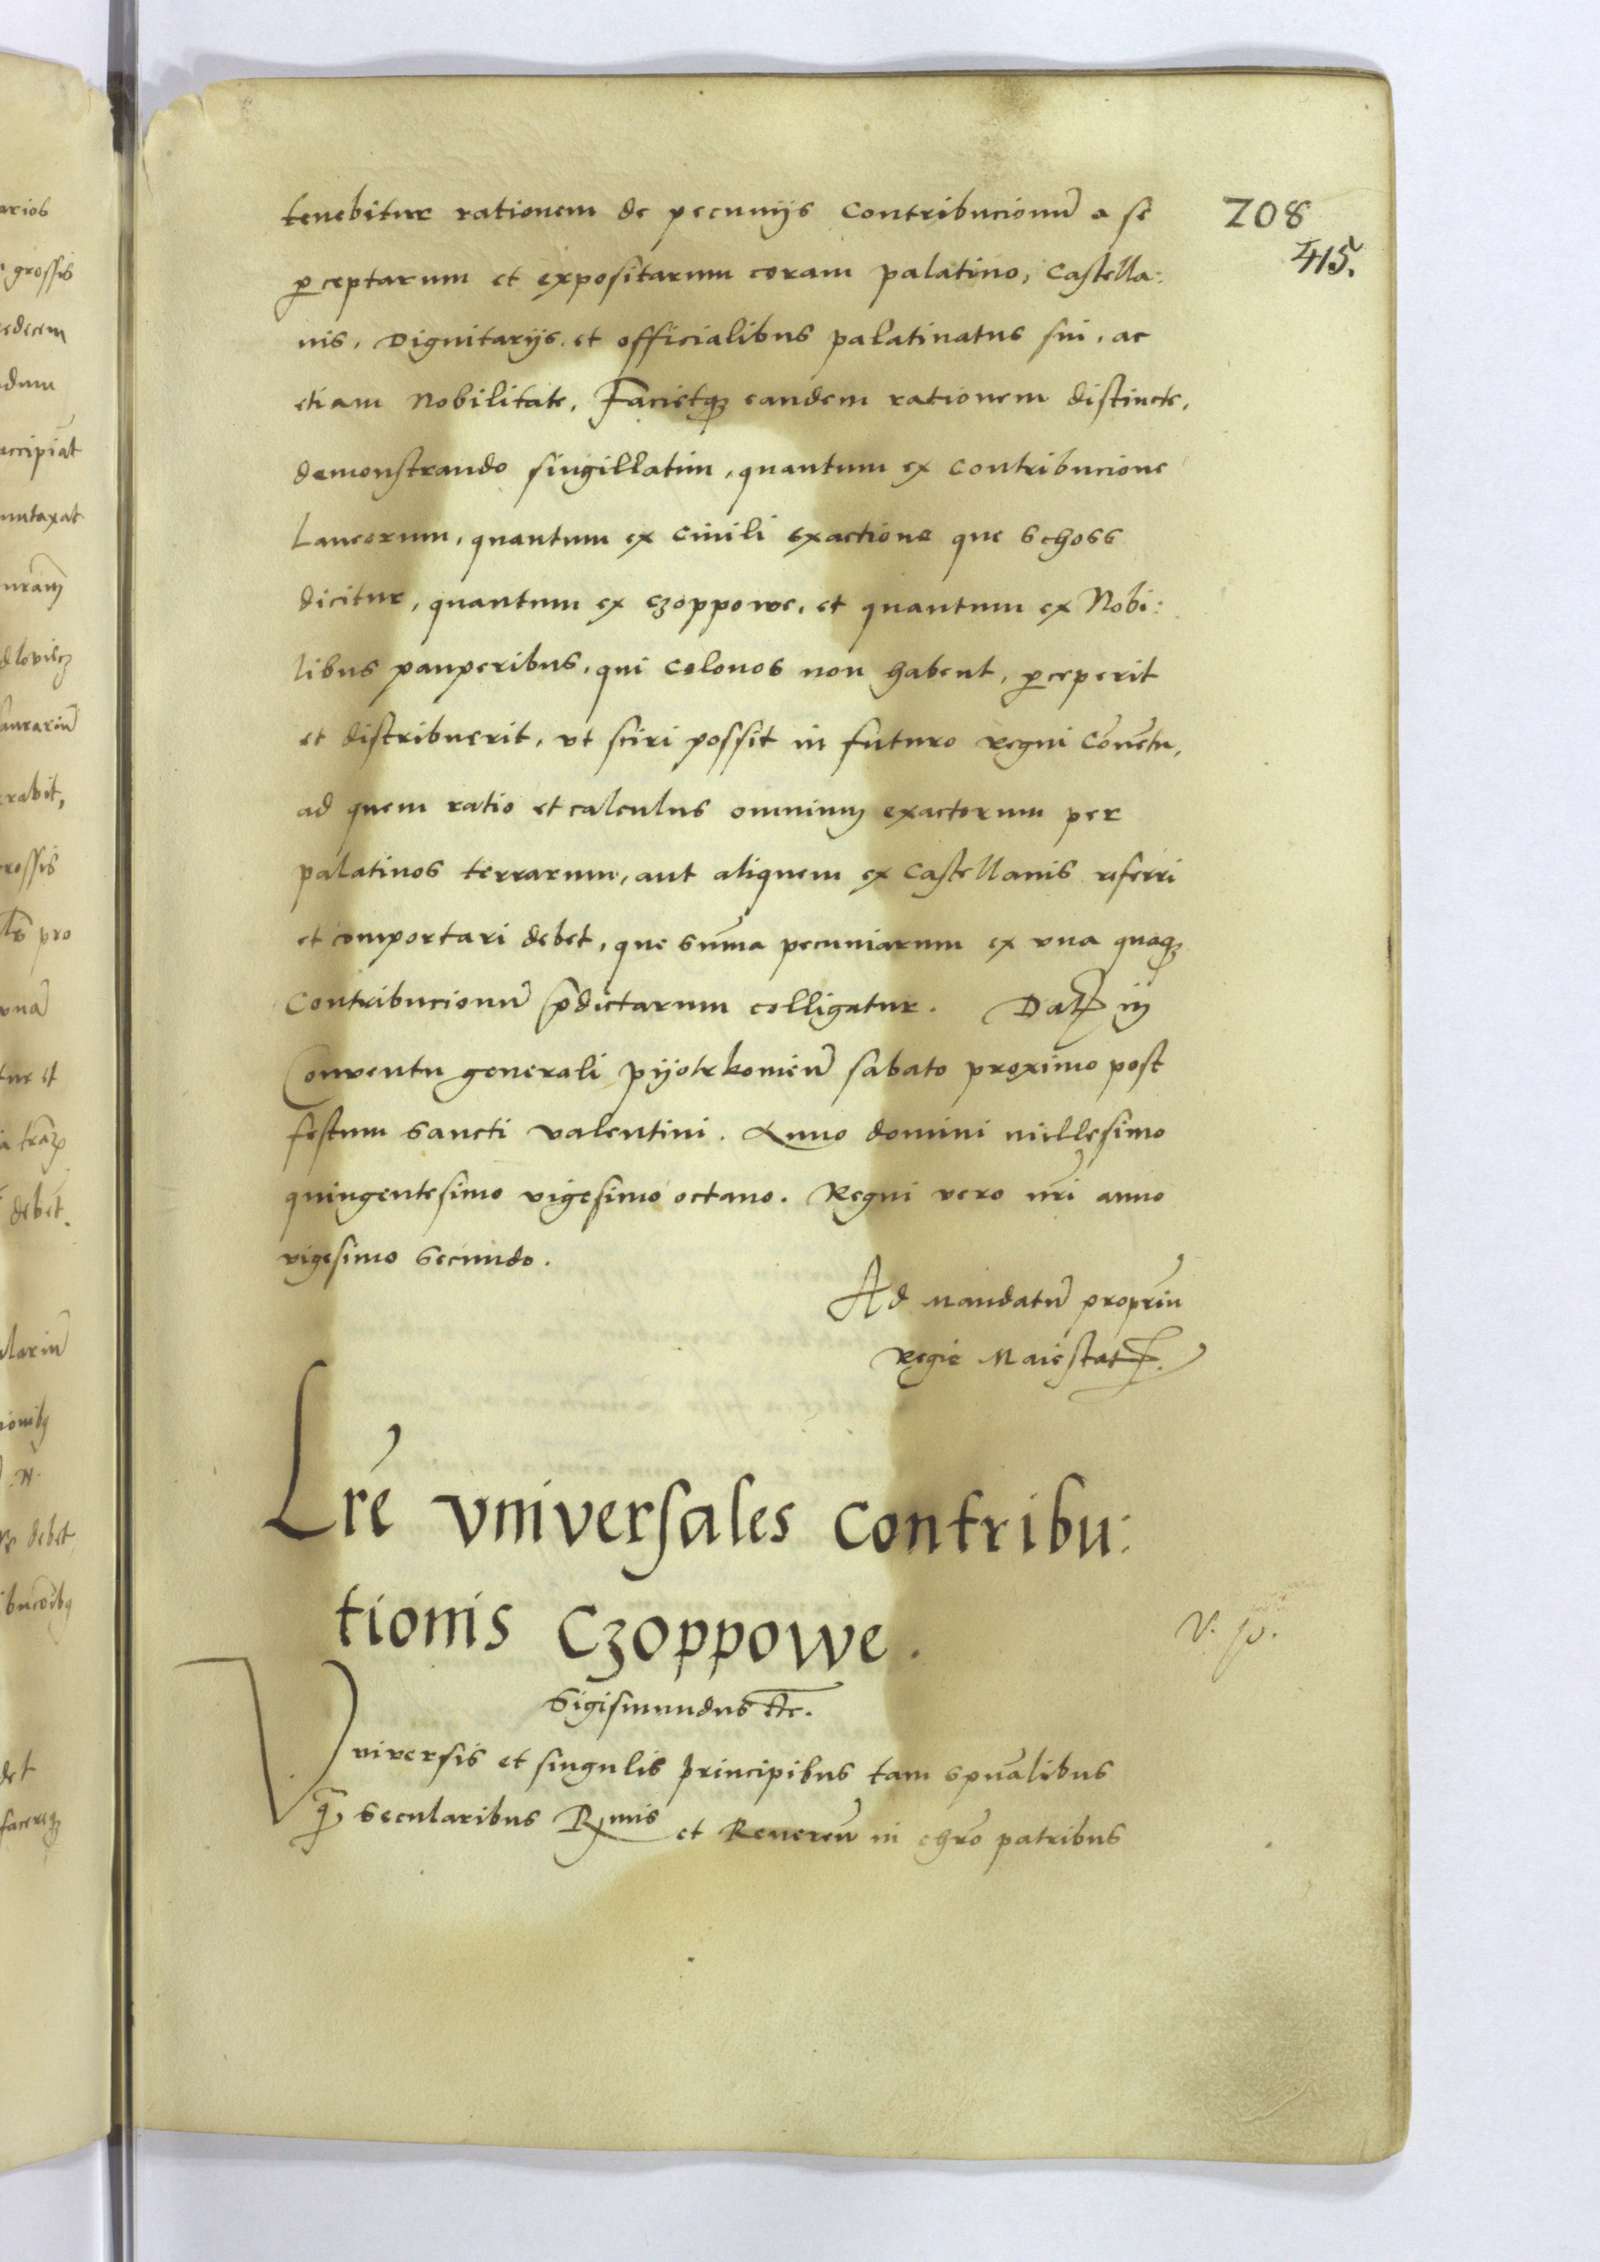 tenebitur rationem de pecunijs Contribucionū a se
208
415.
p̱ceptarum et expositarum coram palatino, Castella:
nis, Dignitarijs et officialibus palatinatus sui, ac
etiam Nobilitate, Facietqꝫ eandem rationem distincte,
demonstrando singillatim, quantum ex Contribucione
Laneorum, quantum ex Ciuili exactione que schoss
dicitur, quantum ex czoppowe, et quantum ex Nobi:
libus pauperibus, qui Colonos non habent, p̱ceperit
et distribuerit, vt sciri possit in futuro regni Cōuētu,
ad quem ratio et calculus omnium exactorum per
palatinos terrarum, aut aliquem ex Castellanis referri
et comportari debet, que sūma pecuniarum ex vna quaqꝫ
Contribucionū p̄dictarum colligatur. Datꝭ in
Conventu generali pijotrkouieñ sabato proximo post
festum Sancti Valentini. Anno domini millesimo
quingentesimo vigesimo octauo. Regni vero nr̄i anno
vigesimo secundo.
Ad Mandatū propriū
Regie Maiestatꝭ.
Lrē vniversales Contribu:
tionis Czoppowe.
Sigismundus etc̄.
Vniversis et singulis principibus tam spūalibus
q̄ꝫ secularibus Rmis et Reuereñ in chr̄o patribus